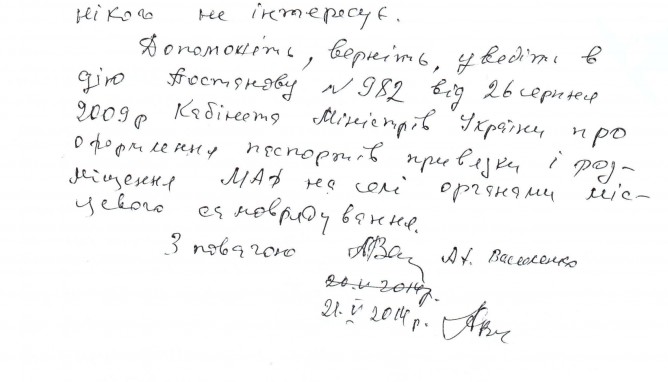 нікого не інтересує.
Допоможіть, верніть, уведіть в
дію Постанову № 982 від 26 серпня
2009 р Кабінета Міністрів України про
оформлення паспортів привязки і роз-
міщення МАФ на селі органами міс-
цевого самоврядування.
З повагою А. Василенко
20.V 2014р.
21.V 2014 р.